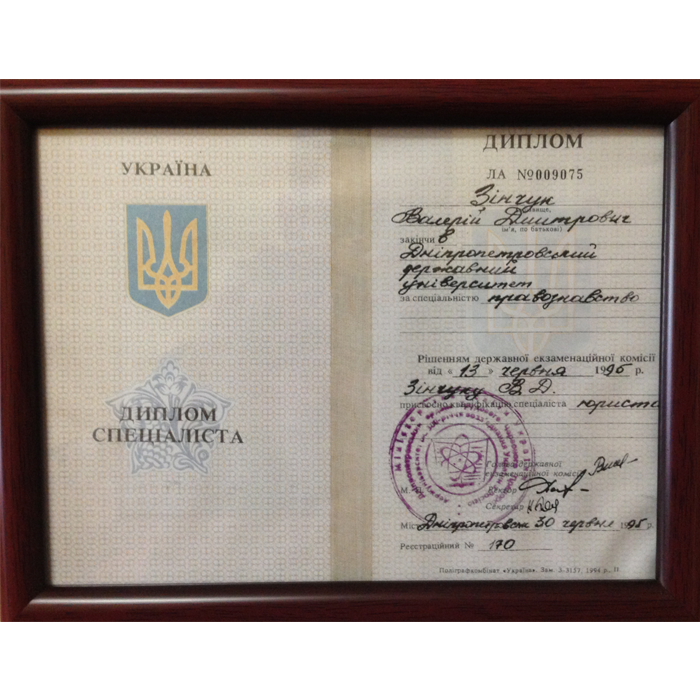 УКРАЇНА
ДИПЛОМ
СПЕЦІАЛІСТА
ДИПЛОМ
ЛА №009075
Зінчук
Валерій Дмитрович
(ім'я, по батькові)
закінчив
Дніпропетровський
державний
університет
за спеціальністю правознавство
Рішенням державної екзаменаційної комісії
від « 13 » червня 1995 р.
Зінчуку В. Д.
присвоєно кваліфікацію спеціаліста юриста
Голова державної
екзаменаційної комісії
М.
Ректор
Секретар
Міс Дніпропетровськ 30 червня 1995 р.
Реєстраційний № 170
Поліграфкомбінат «Україна». Зам. 3-3157, 1994 р.